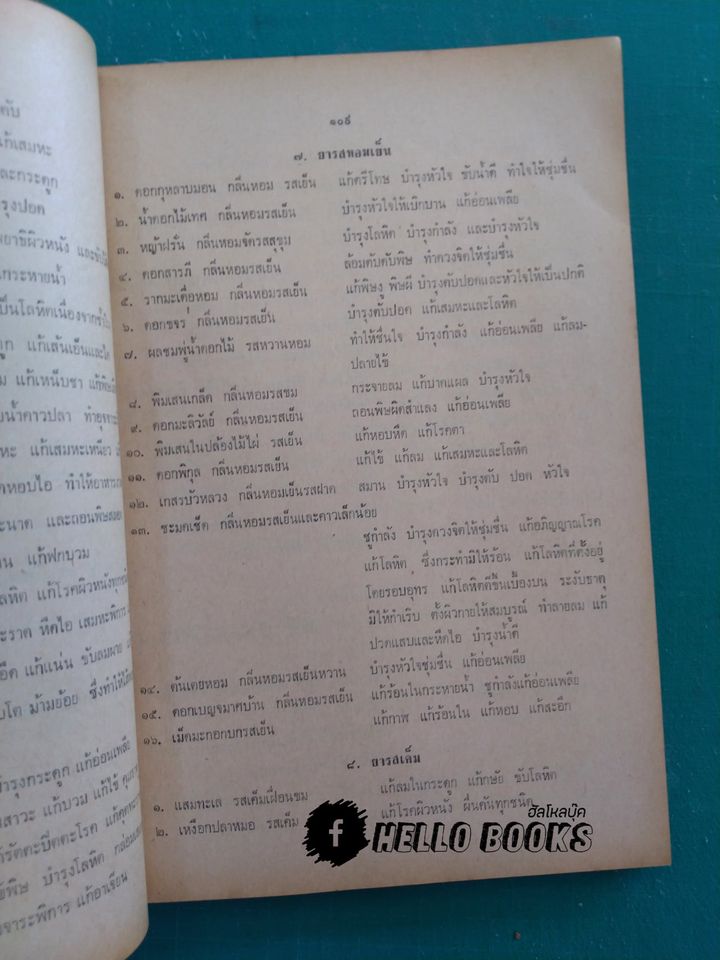 ดับ
แก้เสมหะ
และกระดูก
รุงปอด
พยาธิผิวหนัง และขับ
แก้กระหายน้ำ
เป็นโลหิตเนื่องจาก
แก้เส้นเอ็นและ
แก้เหน็บชา
น้ำคาวปลา
แก้เสมหะเหนียว
หอบไอ ทำให้อาหาร
และถอนพิษ
แก้ฟกบวม
แก้โรคผิวหนังทุกชนิด
หืดไอ เสมหะพิการ
แก้แน่น ขับลมผาย
ม้ามย้อย ซึ่งทำให้
บำรุงกระดูก แก้อ่อนเพลีย
แก้บวม แก้ไข้
บำรุงโลหิต
แก้อาเจียน
๑๐๙
๗. ยารสหอมเย็น
๑. ดอกกุหลาบมอน กลิ่นหอม รสเย็น แก้ตรีโทษ บำรุงหัวใจ ขับน้ำดี ทำใจให้ชุ่มชื่น
๒. น้ำดอกไม้เทศ กลิ่นหอมรสเย็น บำรุงหัวใจให้เบิกบาน แก้อ่อนเพลีย
๓. หญ้าฝรั่น กลิ่นหอมจัดรสสุขุม บำรุงโลหิต บำรุงกำลัง และบำรุงหัวใจ
๔. ดอกสารภี กลิ่นหอมรสเย็น ล้อมตับดับพิษ ทำดวงจิตให้ชุ่มชื่น
๕. รากมะเดื่อหอม กลิ่นหอมรสเย็น แก้พิษงู พิษฝี บำรุงตับปอดและหัวใจให้เป็นปกติ
๖. ดอกขจร กลิ่นหอมรสเย็น บำรุงตับปอด แก้เสมหะและโลหิต
๗. ผลชมพู่น้ำดอกไม้ รสหวานหอม ทำให้ชื่นใจ บำรุงกำลัง แก้อ่อนเพลีย แก้ลม-
ปลายไข้
๘. พิมเสนเกล็ด กลิ่นหอมรสขม กระจายลม แก้บาดแผล บำรุงหัวใจ
๙. ดอกมะลิวัลย์ กลิ่นหอมรสเย็น ถอนพิษผิดสำแลง แก้อ่อนเพลีย
๑๐. พิมเสนในปล้องไม้ไผ่ รสเย็น แก้หอบหืด แก้โรคตา
๑๑. ดอกพิกุล กลิ่นหอมรสเย็น แก้ไข้ แก้ลม แก้เสมหะและโลหิต
๑๒. เกสรบัวหลวง กลิ่นหอมเย็นรสฝาด สมาน บำรุงหัวใจ บำรุงตับ ปอด หัวใจ
๑๓. ชะมดเช็ด กลิ่นหอมรสเย็นและคาวเล็กน้อย
ชูกำลัง บำรุงดวงจิตให้ชุ่มชื่น แก้อภิญญาณโรค
แก้โลหิต ซึ่งกระทำมิให้ร้อน แก้โลหิตที่ตั้งอยู่
โดยรอบอุทร แก้โลหิตตีขึ้นเบื้องบน ระงับธาตุ
มิให้กำเริบ ตั้งผิวกายให้สมบูรณ์ ทำลายลม แก้
ปวดแสบและหืดไอ บำรุงน้ำดี
๑๔. ต้นเตยหอม กลิ่นหอมรสเย็นหวาน บำรุงหัวใจชุ่มชื่น แก้อ่อนเพลีย
๑๕. ดอกเบญจมาศบ้าน กลิ่นหอมรสเย็น แก้ร้อนในกระหายน้ำ ชูกำลังแก้อ่อนเพลีย
๑๖. เม็ดมะกอกบกรสเย็น แก้กาฬ แก้ร้อนใน แก้หอบ แก้สะอึก
๘. ยารสเค็ม
๑. แสมทะเล รสเค็มเฝื่อนขม แก้ลมในกระดูก แก้กษัย ขับโลหิต
๒. เหงือกปลาหมอ รสเค็ม แก้โรคผิวหนัง ผื่นคันทุกชนิด
ฮัลโหลบุ๊ค
f HELLO BOOKS